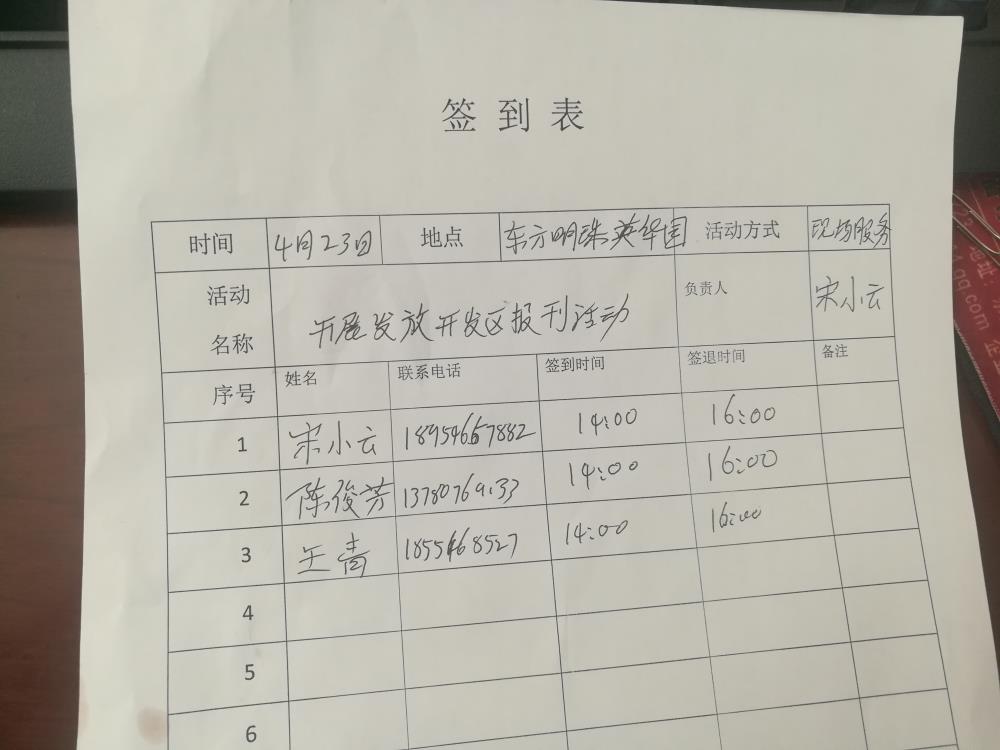 签到表
时间 4月23日 地点 东方明珠英华园 活动方式 现场服务
活动名称 开展发放开发区报刊活动 负责人 宋小云
序号 姓名 联系电话 签到时间 签退时间 备注
1 宋小云 18954667882 14:00 16:00
2 陈俊芳 14:00 16:00
3 王青 14:00 16:00
4
5
6
地址:
qq.com